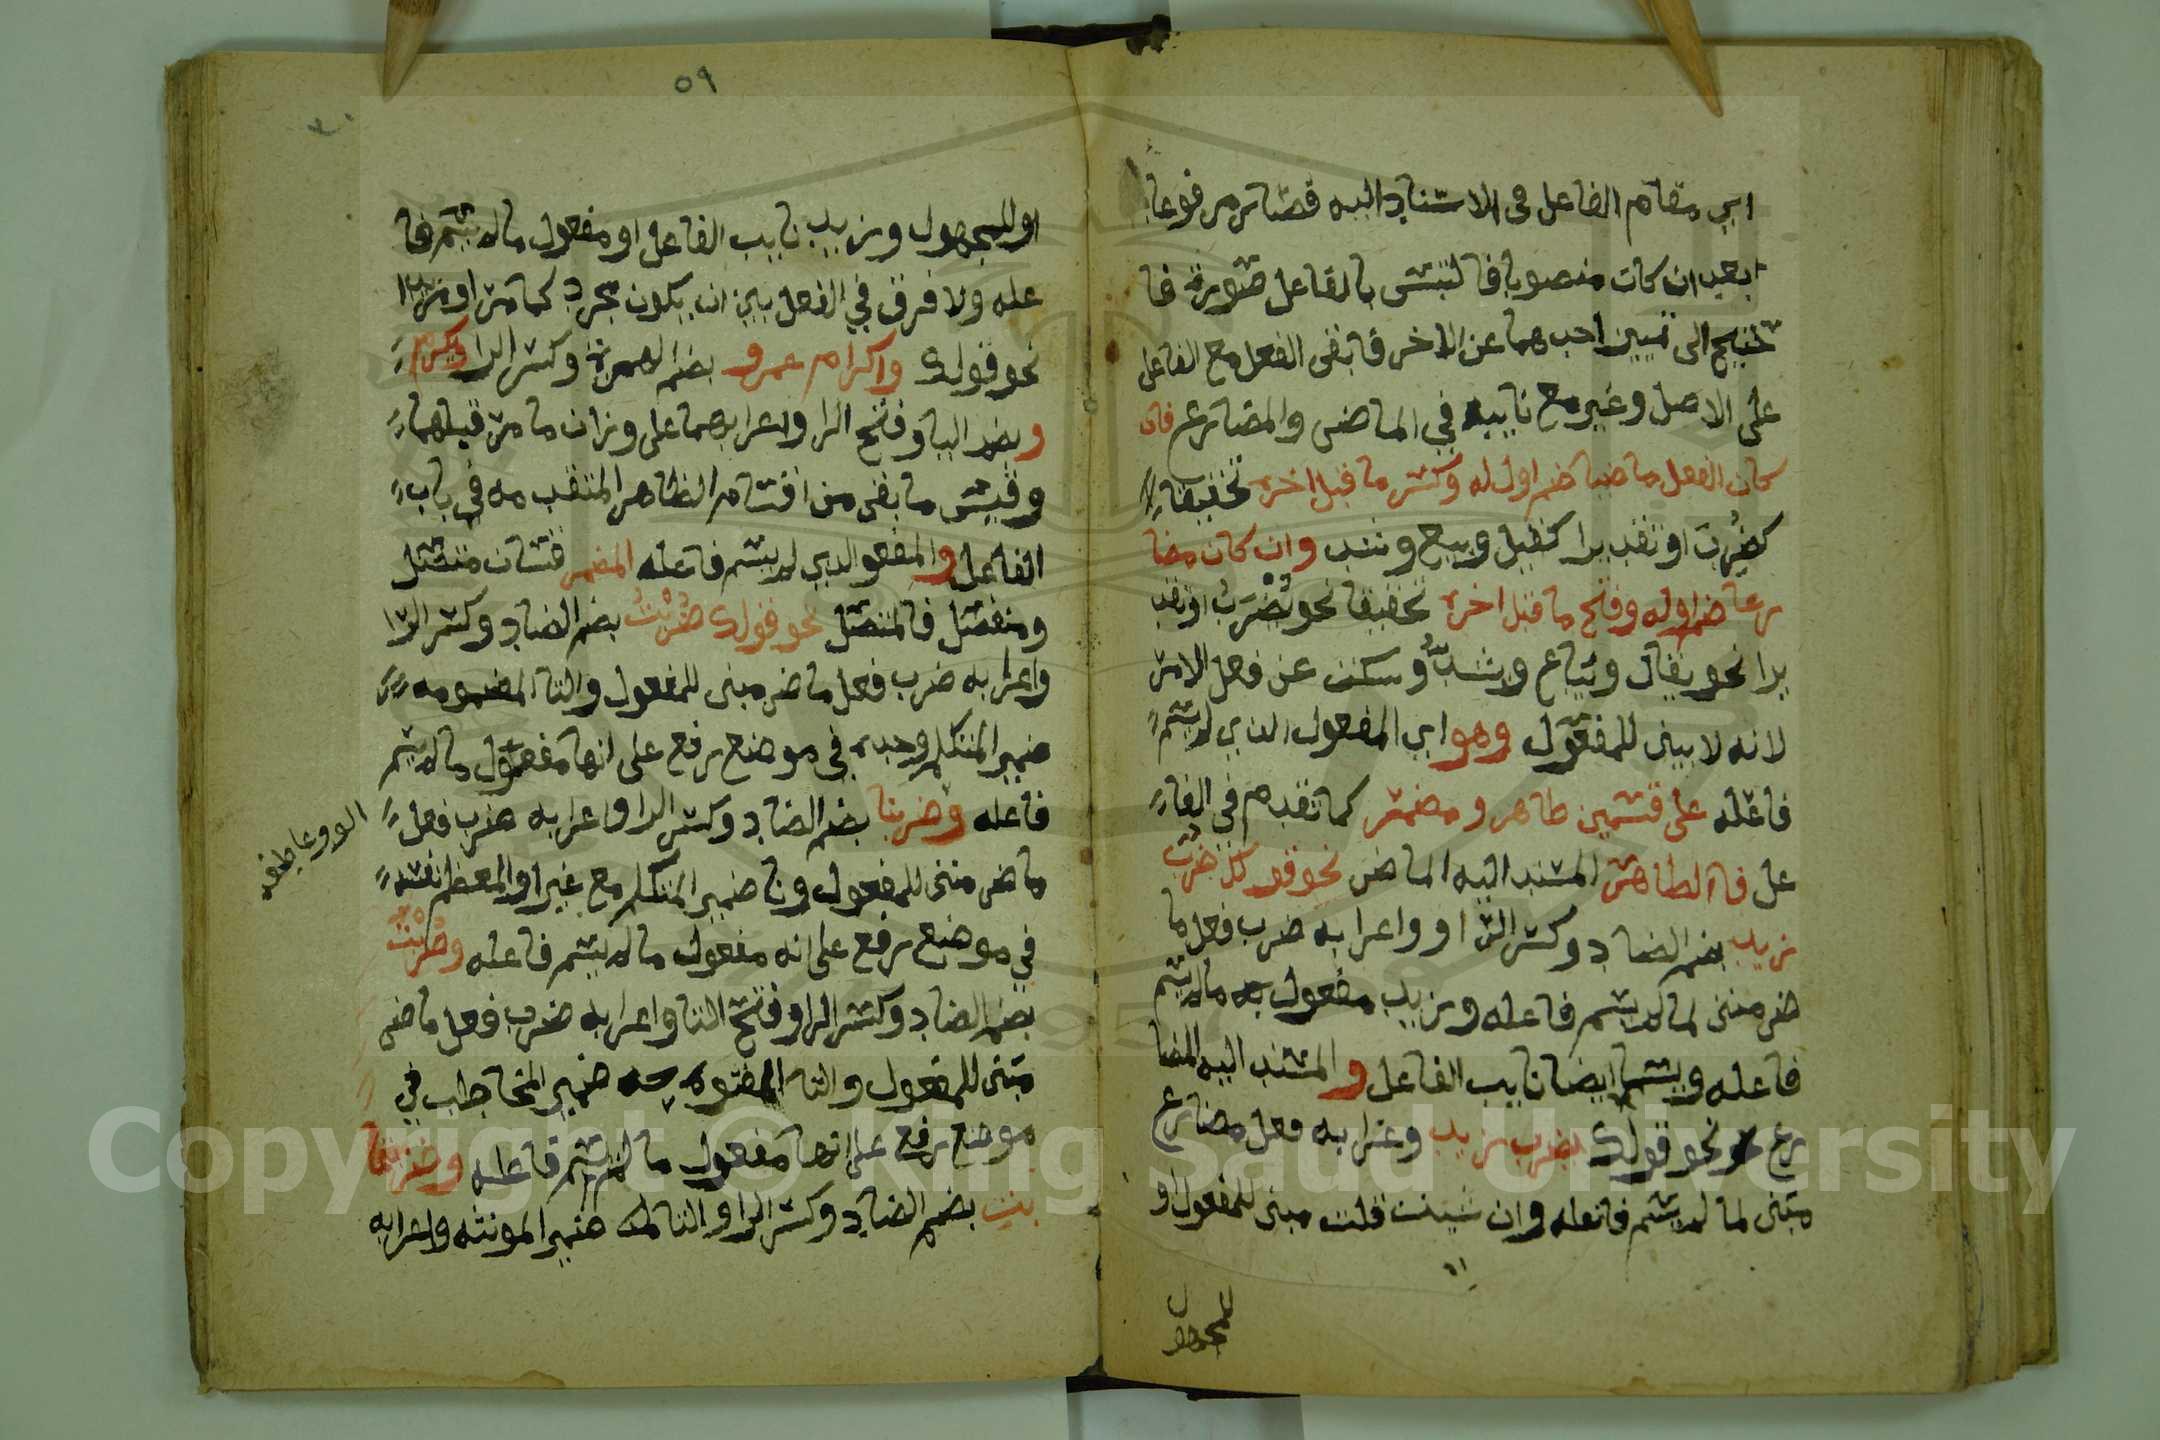 اي مقام الفاعل في الاسناد اليه فصار مرفوعا
بعد ان كان منصوبا فالتبس بالفاعل صورة فا
حتيج الى تمييز احدهما عن الاخر فابقى الفعل مع الفاعل
على الاصل وغير مع نايبه في الماضى والمضارع فان
كان الفعل ماضيا ضم اوله وكسر ما قبل اخره تحقيقا
كضُرِبَ او تقديرا كقيل وبيع وشد وان كان مضا
رعا ضم اوله وفتح ما قبل اخره تحقيقا نحو يُضْرَبُ او تقد
يرا نحو يقال ويباع ويشدّ وسكت عن فعل الامر
لانه لا يبنى للمفعول وهو اي المفعول الذي لم يسم
فاعله على قسمين ظاهر ومضمر كما تقدم في الفا
عل فالظاهر المسند اليه الماضى نحو قولك ضرب
زيد بضم الضاد وكسر الرا واعرابه ضرب فعل ما
ض مبنى لما لم يسم فاعله وزيد مفعول ما لم يسم
فاعله ويسما ايضا نايب الفاعل و المسند اليه المضا
رع نحو قولك يضرب زيد وعرابه فعل مضارع
مبنى لما لم يسم فاعله وان شيت قلت مبنى للمفعول او
للمجهول
٥٩
او للمجهول وزيد نايب الفاعل او مفعول ما لم يسم فا
عله ولا فرق في الفعل بين ان يكون مجرد كما مر او مزيدا
نحو قولك واكرم عمرو بضم الهمزة وكسر الرا ويكرم
و بضم اليا وفتح الرا واعرابهما على وزان ما مر قبلهما
وقيس ما بقى من اقسام الظاهر المتقدمه في باب
الفاعل و المفعو الذي لم يسم فاعله المضمر قسمان متصل
ومنفصل فالمتصل نحو قولك ضُرِبْتُ بضم الضاد وكسر الرا
واعرابه ضرب فعل ماض مبنى للمفعول والتا المضمومه
ضمير المتكلم وحده في موضع رفع على انها مفعول ما لم يسم
فاعله وضربنا بضم الضاد وكسر الرا واعرابه ضرب فعل
ماض مبنى للمفعول ونا ضمير المتكلم مع غير او المعظم نفسه
في موضع رفع على انه مفعول ما لم يسم فاعله وضُرِبْتَ
بضم الضاد وكسر الرا وفتح التا واعرابه ضرب فعل ماضى
مبنى للمفعول والتا المفتوحه ضمير المخاطب في
موضع رفع على انها مفعول ما لم يسم فاعله
بضم الضاد وكسر الرا والتا ضمير المونثه واعرابه
الوو عاطفه
Copyright © King Saud University
1957